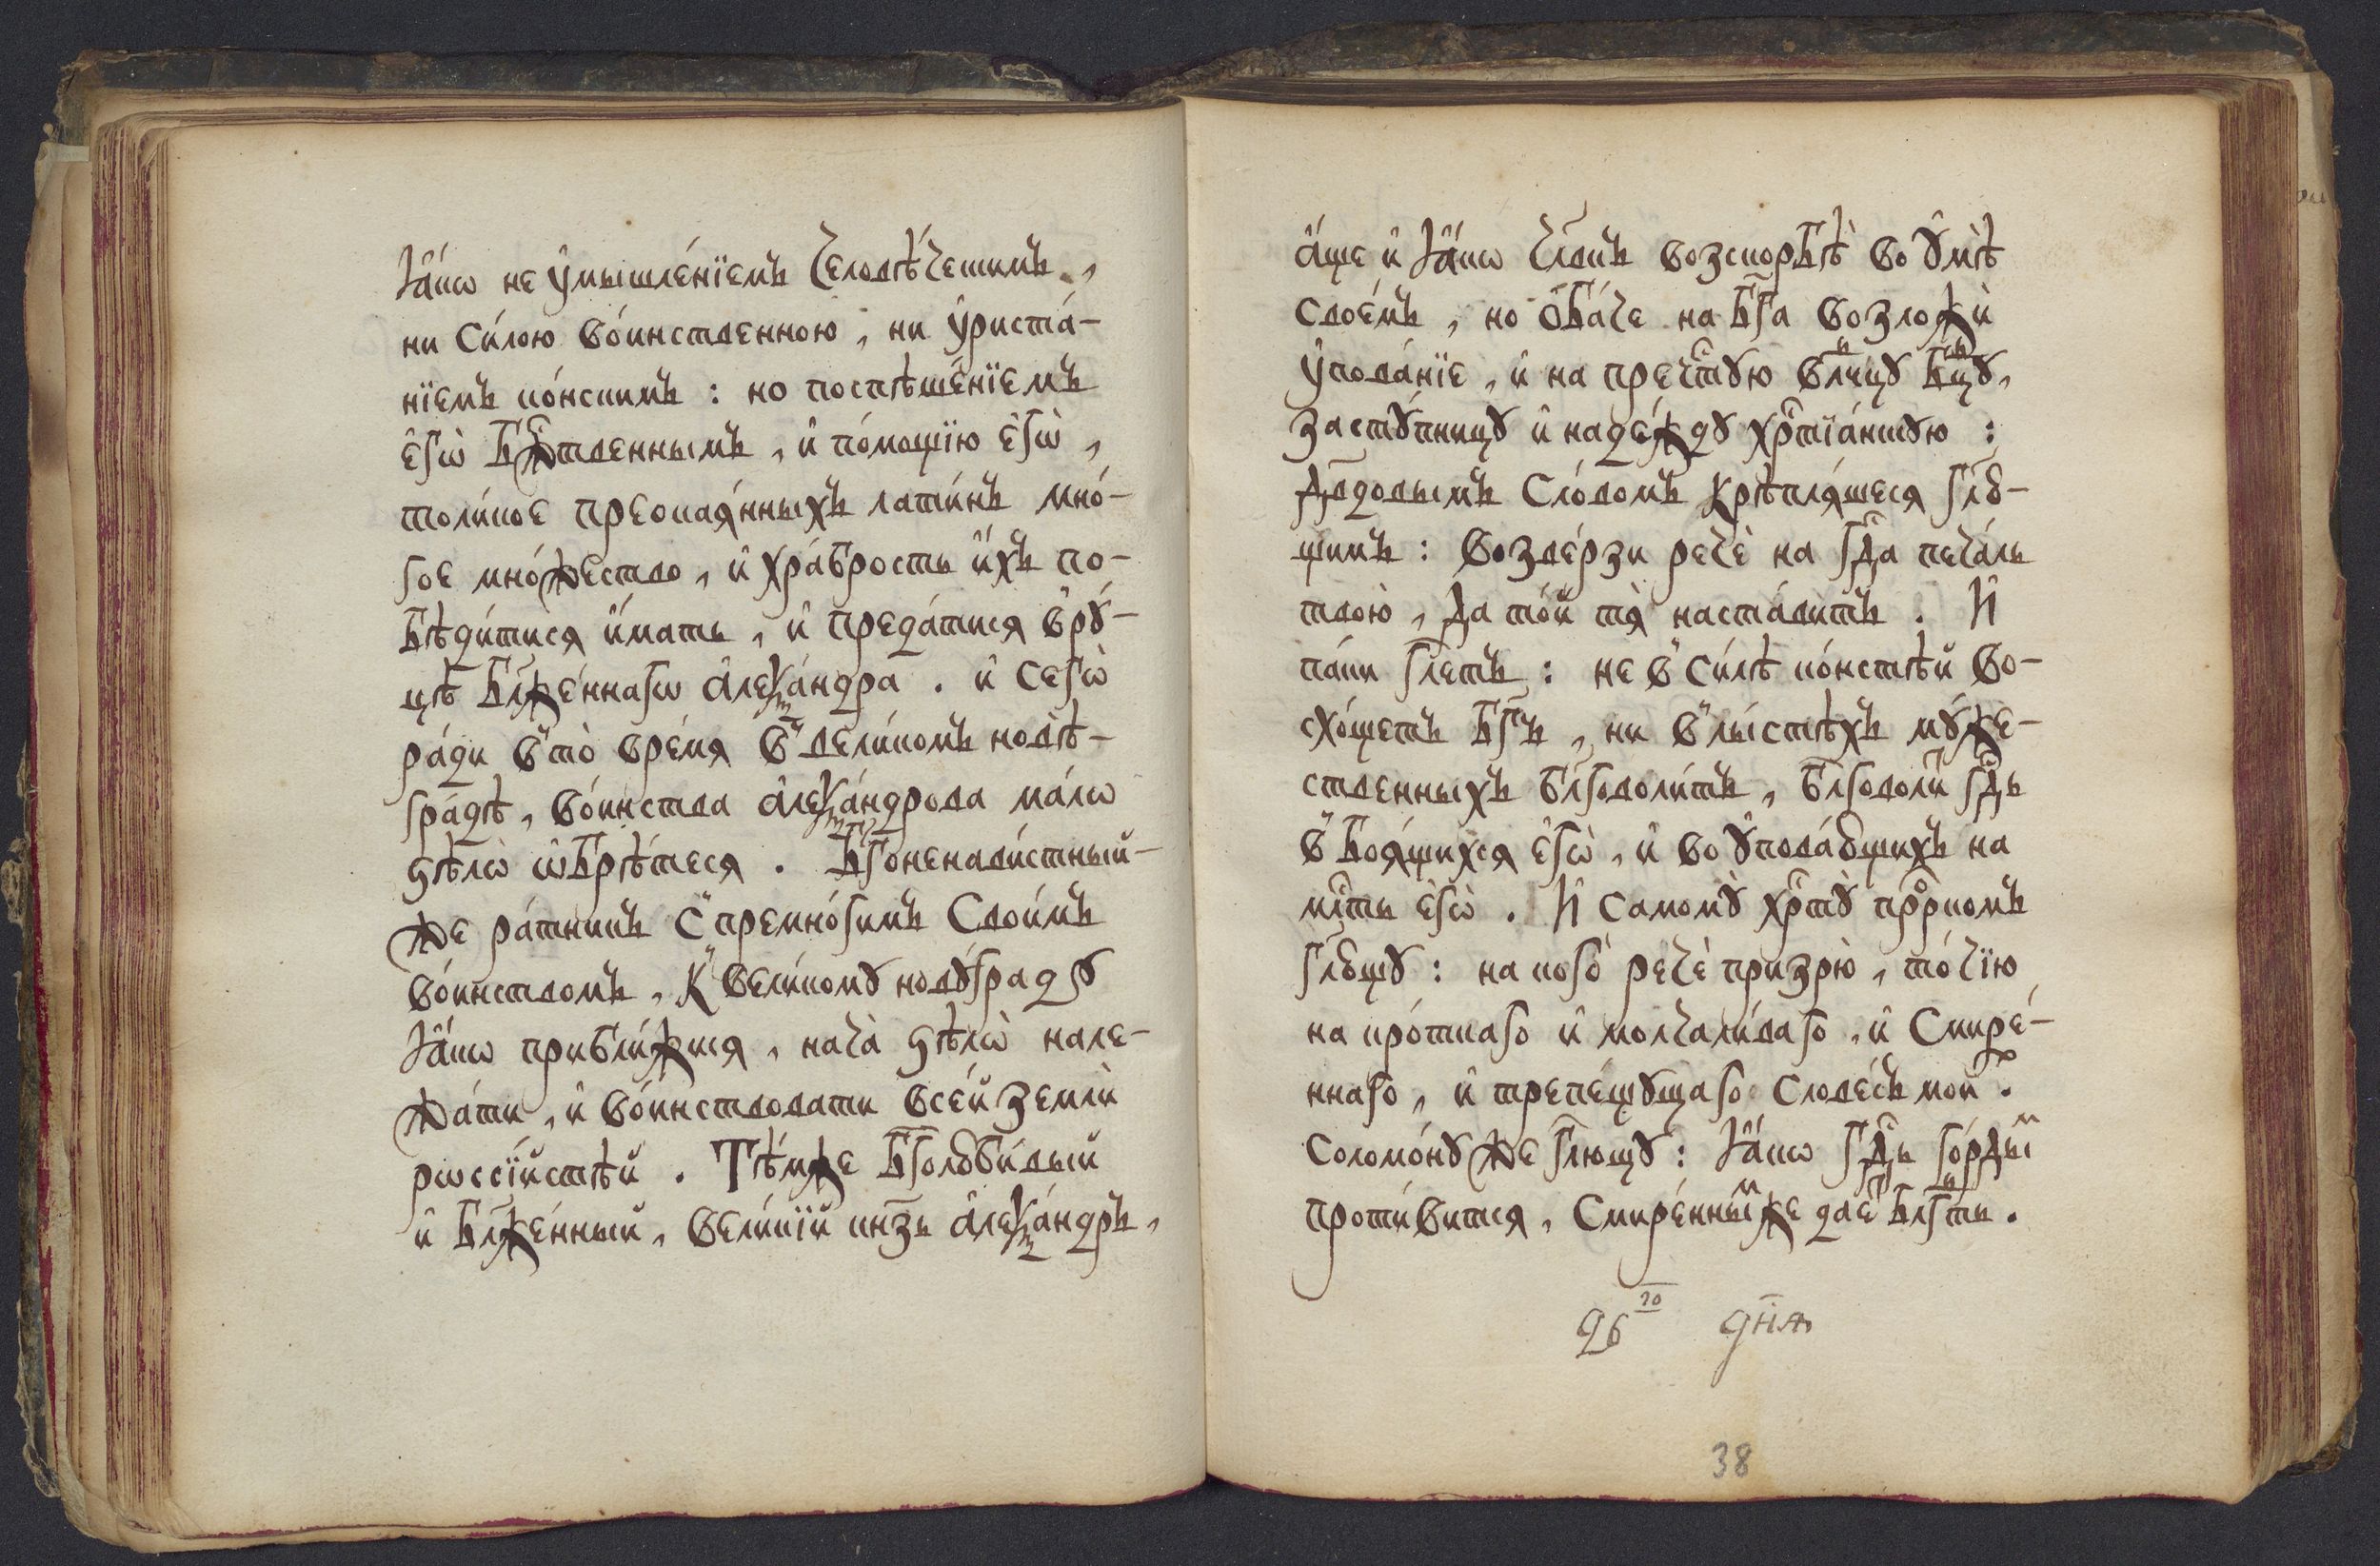 ꙗ҆́кѡ не ᲂу҆мышле́нїемъ человѣ́ческимъ,
ни си́лою во́инственною, ни ᲂу҆риста́-
нїемъ ко́нскимъ: но поспѣше́нїемъ
є҆гѡ̀ бж҃твеннымъ, и҆ по́мощїю є҆гѡ̀,
толи́кое преокаѧ́нныхъ лати́нъ мно́-
гое мно́жество, и҆ хра́брость и҆́хъ по-
бѣди́тисѧ и҆́мать, и҆ преда́тисѧ в̾рꙋ́-
цѣ бл҃же́ннагѡ а҆леѯа́ндра. и҆ сегѡ̀
ра́ди в̾то̀ вре́мѧ в̾вели́комъ новѣ-
гра́дѣ, во́инства а҆леѯа́ндрова ма́лѡ
ѕѣлѡ̀ ѡ҆брѣ́тесѧ. бг҃оненави́стный-
же ра́тникъ с̾премно́гимъ свои́мъ
во́инствомъ, к̾вели́комꙋ новꙋ́градꙋ
ꙗ҆́кѡ прибли́жисѧ, нача̀ ѕѣлѡ̀ нале-
жа́ти, и҆ во́инствовати все́й землѝ
рѡссі́йстѣй. Тѣ́мже бг҃олюби́вый
и҆ бл҃же́нный, вели́кїй кн҃зь а҆леѯа́ндръ,
а҆́ще и҆ ꙗ҆́кѡ чл҃вкъ возскорбѣ̀ во ᲂу҆мѣ̀
свое́мъ, но ѻ҆ба́че на бг҃а возложѝ
ᲂу҆пова́нїе, и҆ на преч҃тꙋю вл҃чцꙋ бц҃ꙋ,
застꙋ́пницꙋ и҆ наде́ждꙋ хрⷭ҇тїа́нскꙋю:
дв҃довымъ сло́вомъ крѣплѧ́шесѧ гл҃ю-
щимъ: возве́рзи речѐ на гдⷭ҇а печа́ль
твою̀, да то́й тѧ̀ наста́витъ. И҆
па́ки гл҃етъ: не в̾си́лѣ ко́нстѣй во-
схо́щетъ бг҃ъ, ни в̾лы́стѣхъ мꙋ́же-
ственныхъ бл҃говоли́тъ, бл҃говоли́тъ гдⷭ҇ь
в̾боѧ́щихсѧ є҆гѡ̀, и҆ во ᲂу҆пова́ющихъ на
млⷭ҇ть є҆гѡ̀. И҆ самомꙋ̀ хрⷭ҇тꙋ̀ прⷪ҇ркомъ
гл҃ющꙋ: на кого̀ речѐ призрю̀, то́чїю
на кро́ткаго и҆ молчали́ваго, и҆ смире́-
ннаго, и҆ трепе́щꙋщаго слове́съ мои́хъ.
соломо́нꙋ же гл҃ющꙋ: ꙗ҆́кѡ гдⷭ҇ь го́рдымъ
проти́витсѧ, смире́нныⷨже дае́ⷮ бл҃гⷣть.
26го дня
38